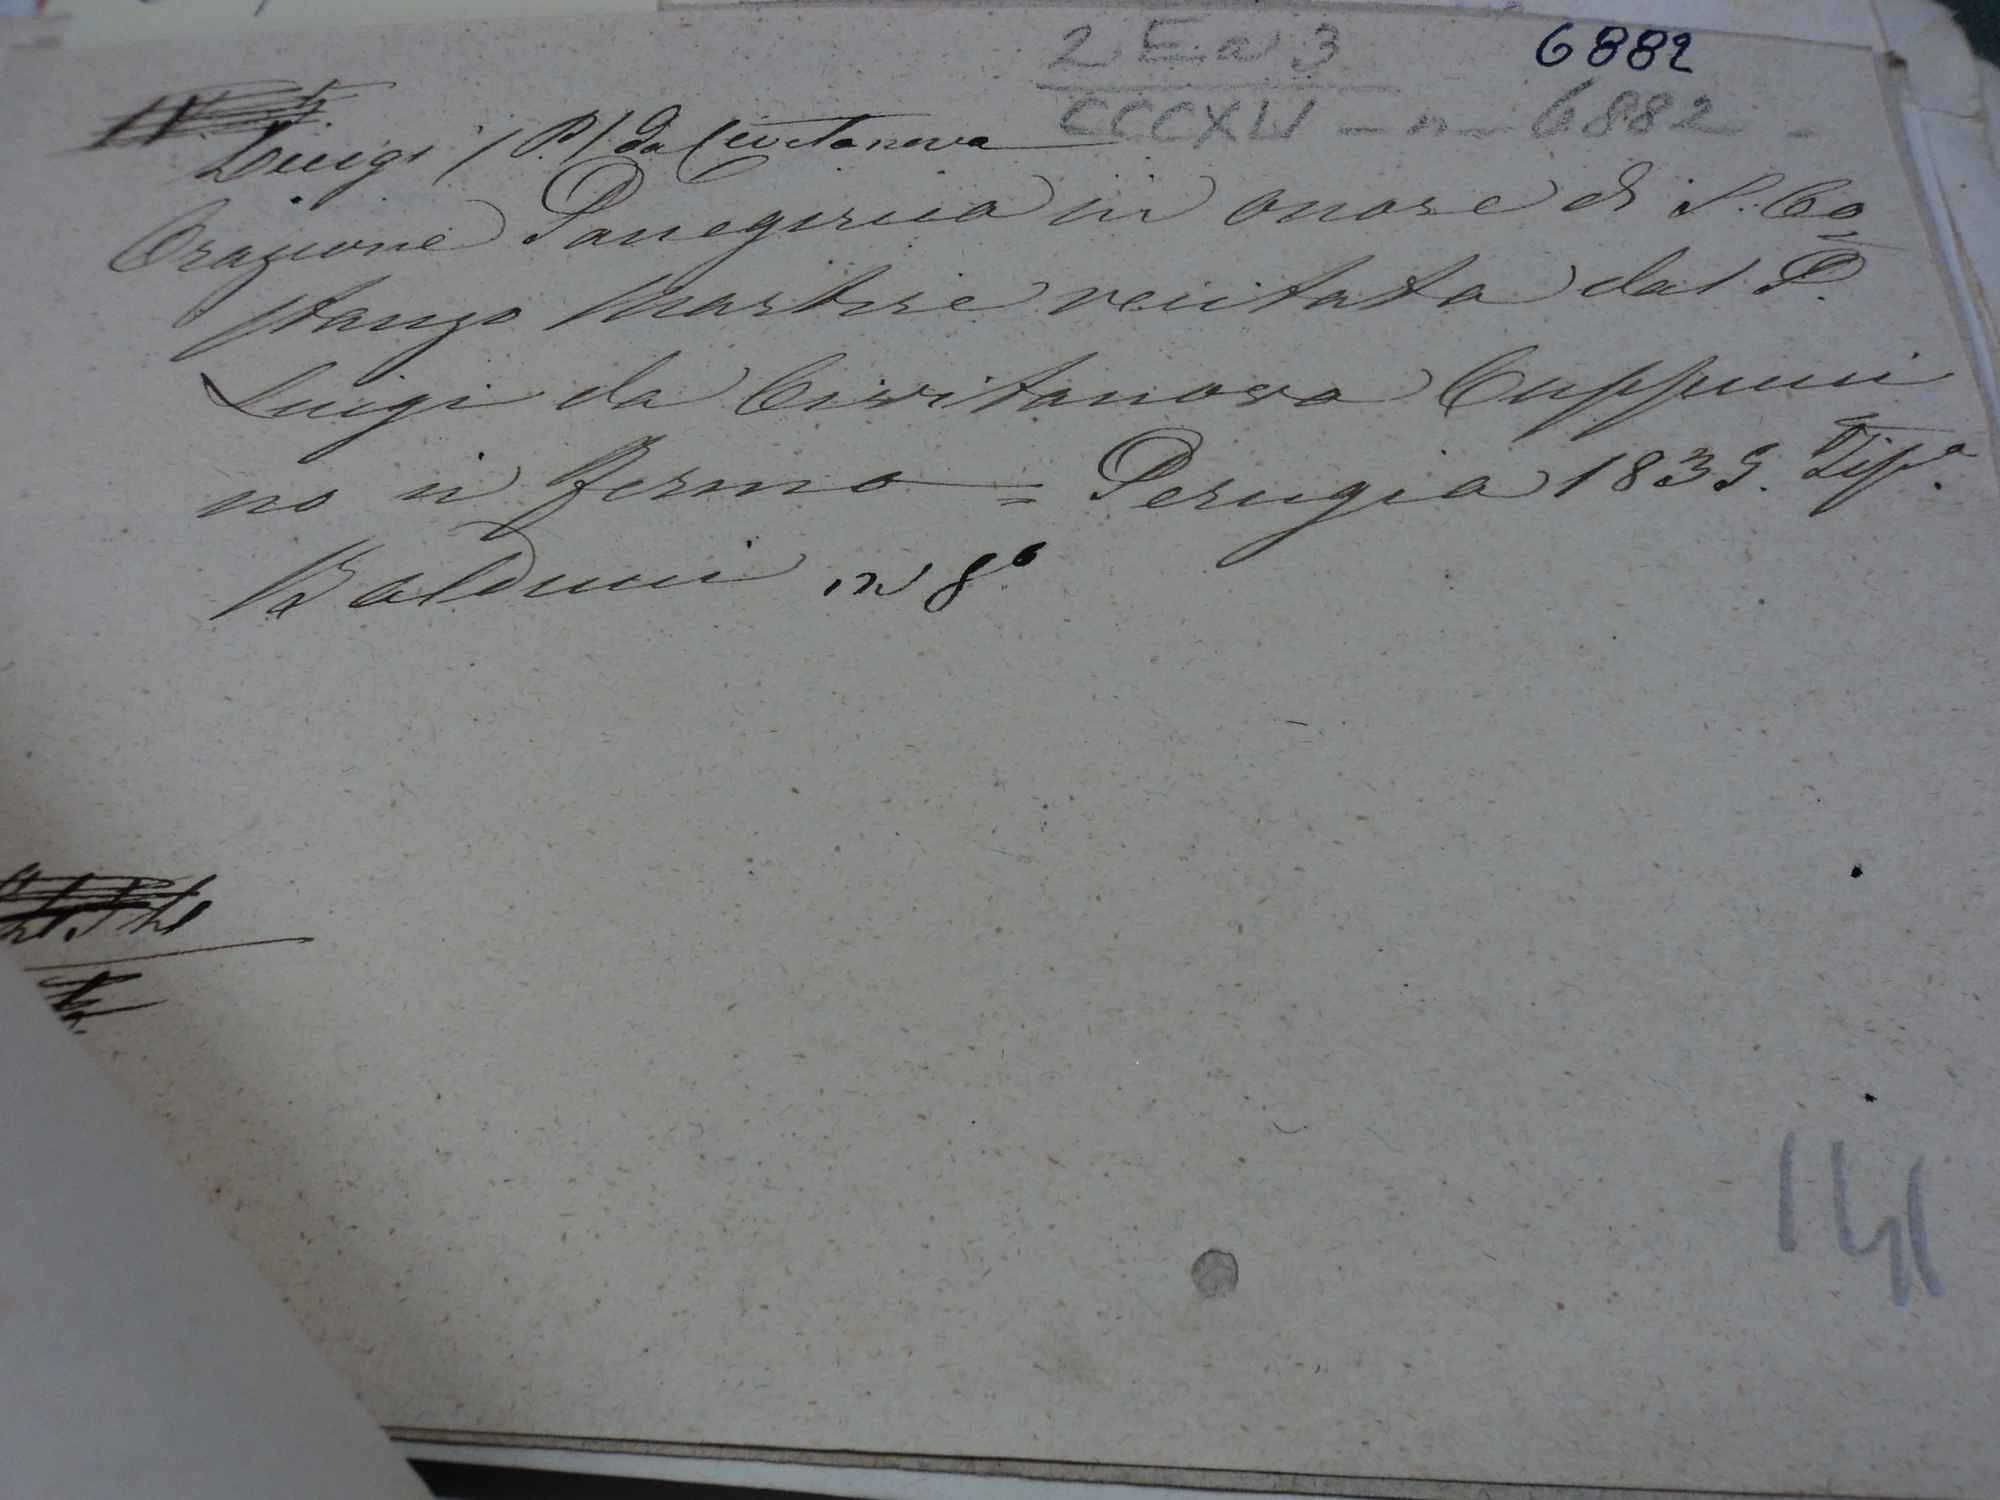 2 E a 3
6882
CCCXLV - n. 6882 -
Luigi (P.) da Civitanova
Orazione Panegirica in onore di S. Co=
stanzo Martire recitata dal P.
Luigi da Civitanova Cappucci
no in Fermo = Perugia 1839. Tip.a
Balduini in 8°
141